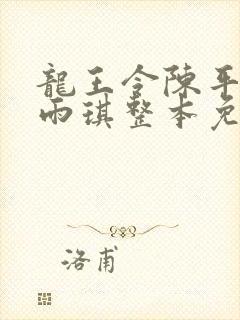 龍王令陳平
雨琪整本免
洛甫